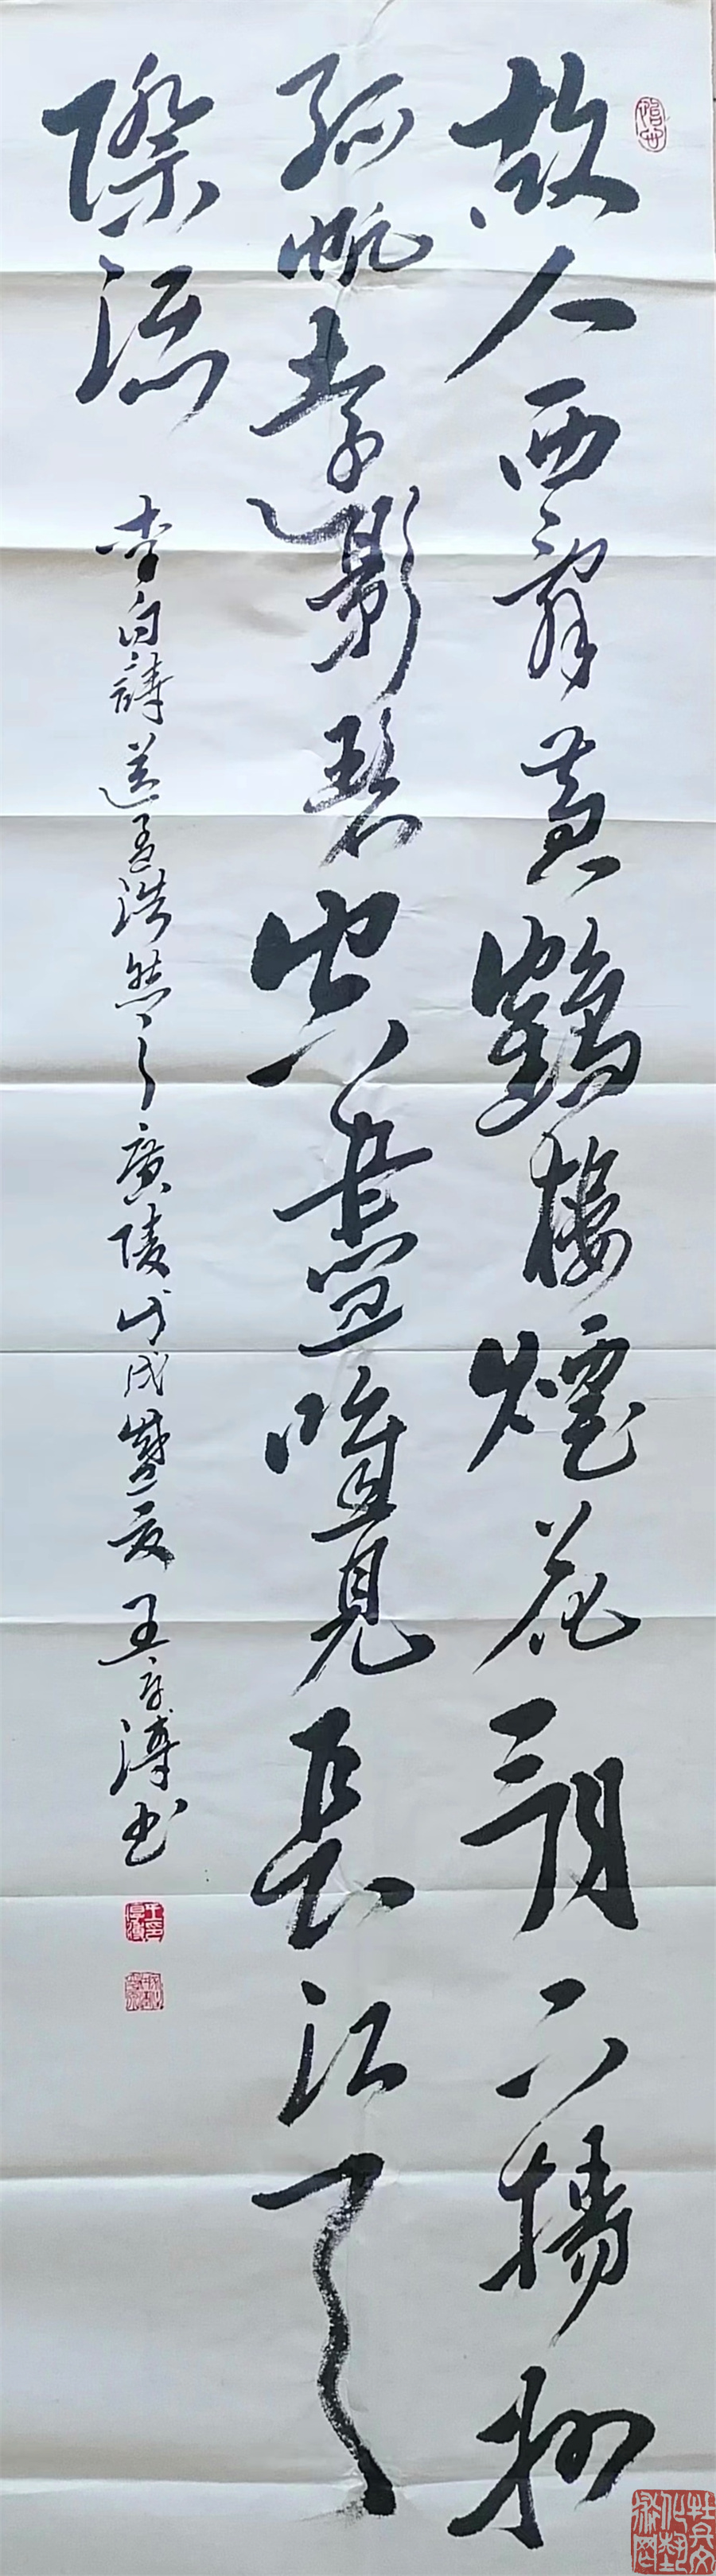 故人西辭黄鶴樓煙花三月下揚州
孤帆遠影碧空盡唯見長江天
際流
李白詩送孟浩然之廣陵戊戌盛夏王书